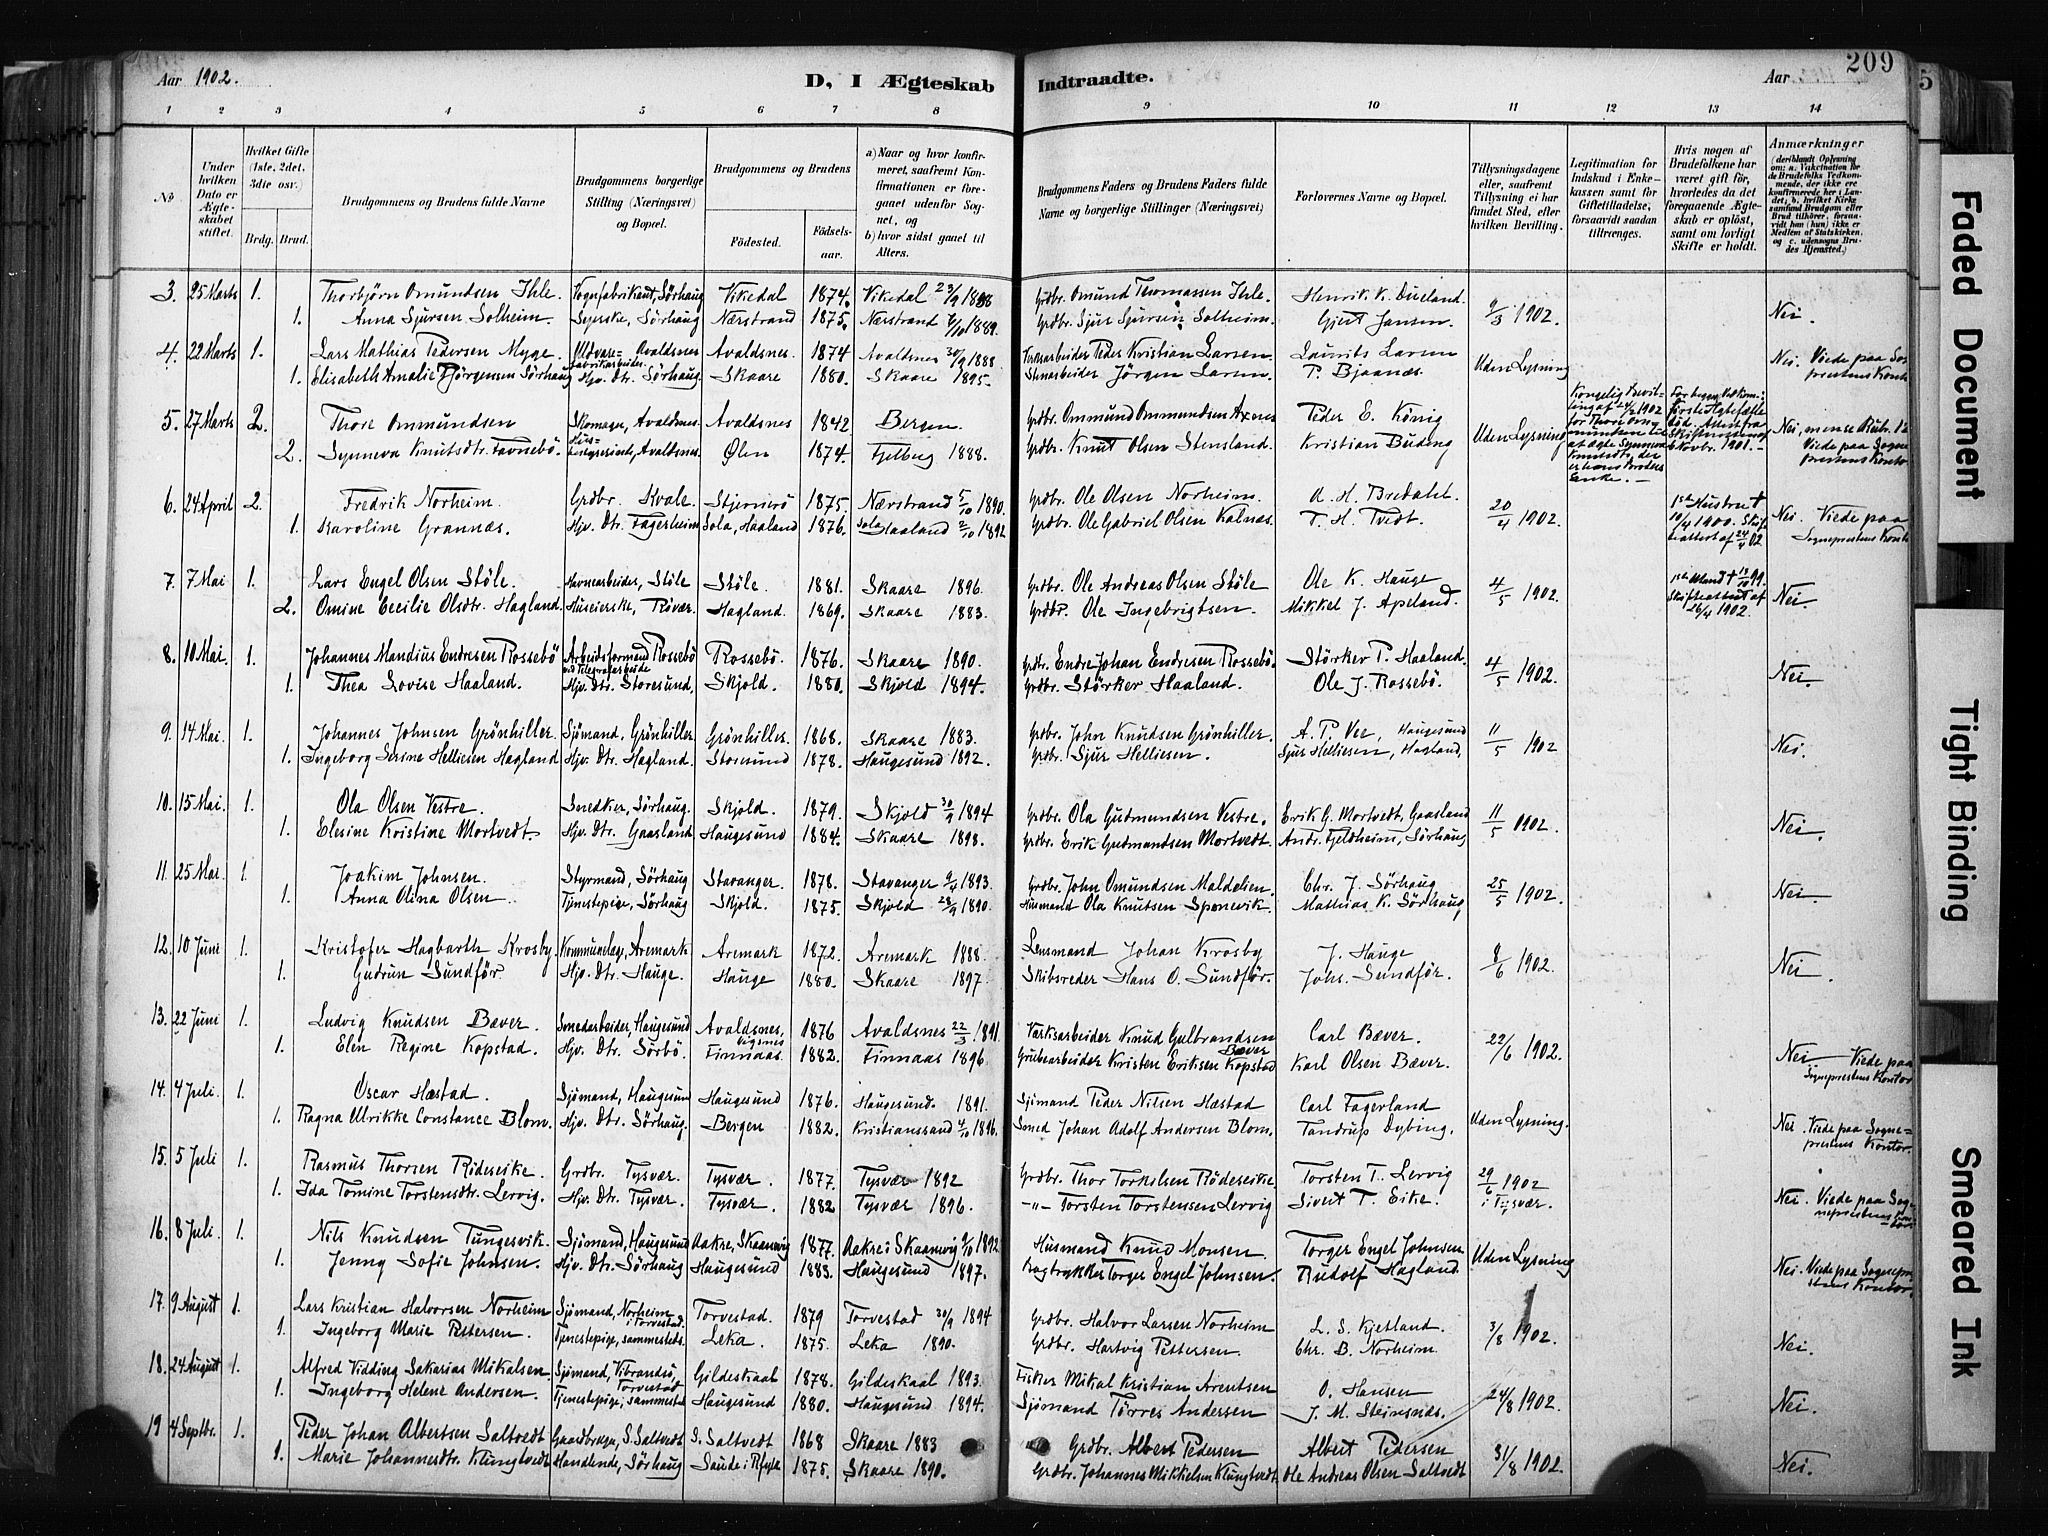 Aar 1902.
D, I Ægteskab Indtraadte.
Aar
209
5
1 2 3 4 5 6 7 8 9 10 11 12 13 14
No
Under hvilken Dato er Ægteskabet stiftet.
Hvilket Gifte (1ste, 2det, 3die osv.)
Brdg. Brud.
Brudgommens og Brudens fulde Navne
Brudgommens borgerlige Stilling (Næringsvei) og Bopæl.
Brudgommens og Brudens
Födested. Födselsaar.
a) Naar og hvor konfirmeret, saafremt Konfirmationen er foregaaet udenfor Sognet, og
b) hvor sidst gaaet til Alters.
Brudgommens Faders og Brudens Faders fulde Navne og borgerlige Stillinger (Næringsvei)
Forlovernes Navne og Bopæl.
Tillysningsdagene eller, saafremt Tillysning ei har fundet Sted, efter hvilken Bevilling.
Legitimation for Indskud i Enkekassen samt for Giftetilladelse, forsaavidt saadan tiltrænges.
Hvis nogen af Brudefolkene har været gift för, hvorledes da det foregaaende Ægteskab er oplöst, samt om lovligt Skifte er holdt.
Anmærkninger
(deriblandt Oplysning om: a. Vaktcination for de Brudefolks Vedkommende, der ikke ere konfirmerede her i Landet; b. hvilket Kirkesamfund Brudgom eller Brud tilhörer, forsaavidt han (hun) ikke er Medlem af Statskirken, og c. udensogns Brudes Hjemsted.)
3. 25 Marts 1. Thorbjörn Omundsen Ihle. Vognfabrikant, Sörhaug Vikedal 1874. Vikedal 23/9 1888 Grdbr. Omund Thomassen Ihle. Henrik K. Dueland. 9/3 1902. Nei.
1. Anna Sjursen Solheim. Syerske, Sörhaug Nærstrand 1875. Nærstrand 6/10 1889. Grdbr. Sjur Sjursen Solheim. Gjert Jansen.
4. 22 Marts 1. Lars Mathias Pedersen Myge. Uldvarefabrikarbeider Avaldsnes Avaldsnes. 1874 Avaldsnes 30/9 1888 Peder Kristian Larsen. Laurits Larsen Uden Lysning Nei. Viede paa Sogneprestens Kontor
1. Elisabeth Amalie Jörgensen Sörhaug Hjv. Dtr. Sörhaug. Skaare 1880. Skaare 1895. Stenarbeider Jörgen Larsen. P. Bjaanæs.
5. 27 Marts 2. Thore Ommundsen Skomager, Avaldsnes. Avaldsnes 1842 Bergen. Grdbr. Ommund Ommundsen Axnes Peder E. König Uden Lysning Kongelig Bevilling af 24/2 1902 for Thore Ommundsen til at ægte Synneva Knutsdtr, der er hans Broders Enke.
2. Synneva Knutsdtr. Favnebö. Avaldsnes. Ølen 1874. Fjelberg 1888. Grdbr. Knut Olsen Stensland. Kristian Buding
6. 24 April 2. Fredrik Norheim. Grdbr. Kvale. Stjernerö 1875. Nærstrand 5/10 1890. Grdbr. Ole Olsen Norheim. A. H. Bredahl. 20/4 1902. 1ste Hustru † 10/4 1900. Skifteattest af 24/4 02 Nei. Viede paa Sogneprestens Kontor
1. Karoline Grannæs. Hjv. Dtr. Fagerheim Sola, Haaland 1876. Sola Haaland 2/10 1892 Grdbr. Ole Gabriel Olsen Kalnæs. T. H. Tvedt.
7. 7 Mai 1. Lars Engel Olsen Stöle. Havnearbeider, Stöle Stöle. 1881. Skaare 1896. Grdbr. Ole Andreas Olsen Stöle Ole K. Hauge 4/5 1902. 1ste Mand † 19/10 99. Skifteattest af 26/4 1902. Nei.
2. Omine Cecilie Olsdtr. Hagland. Huseierske, Rövær. Hagland. 1869. Skaare 1883. Grdbr. Ole Ingebrigtsen. Mikkel J. Apeland.
8. 10 Mai. 1. Johannes Mandius Endresen Rossebö Arbeidsformand ved Telegrafarbeide Rossebö Rossebö. 1876. Skaare 1890. Grdbr. Endre Johan Endresen Rossebö. Störker P. Haaland. 4/5 1902. Nei.
1. Thea Lovise Haaland. Hjv. Dtr. Storesund, Skjold. 1880. Skjold 1894. Grdbr. Störker Haaland. Ole J. Rossebö.
9. 14 Mai. 1. Johannes Johnsen Grönhiller. Sjömand, Grönhiller. Grönhiller. 1868. Skaare 1883. Grdbr. John Knudsen Grönhiller. A. P. Vee, Haugesund 11/5 1902 Nei.
1. Ingeborg Serine Helliesen Hagland Hjv. Dtr. Hagland. Storesund 1878. Haugesund 1892. Grdbr. Sjur Helliesen. Sjur Helliesen, Hagland,
10. 15 Mai. 1. Ola Olsen Vestre. Snedker, Sörhaug. Skjold. 1879. Skjold 30/9 1894 Grdbr. Ola Gudmundsen Vestre. Erik G. Mortvedt, Gaasland 11/5 1902. Nei.
1. Elesine Kristine Mortvedt Hjv. Dtr. Gaasland Haugesund 1884. Skaare 1898. Grdbr. Erik Gudmandsen Mortvedt. Andr. Fjeldheim, Sörhaug
11. 25 Mai. 1. Joakim Johnsen. Styrmand, Sörhaug Stavanger. 1878. Stavanger 9/4 1893. Grdbr. John Omundsen Maldelien. Chr. J. Sörhaug 25/5 1902. Nei.
1. Anna Olina Olsen. Tjenestepige, Sörhaug Skjold. 1875. Skjold 28/9 1890. Husmand Ola Knutsen Sponevik. Mathias K. Sörhaug,
12. 10 Juni 1. Kristofer Hagbarth Krosby. Kommunelæge, Aremark Aremark 1872. Aremark 1888. Lensmand Johan Krosby J. Hauge 8/6 1902. Nei.
1. Gudrun Sundför Hjv. Dtr. Hauge. Hauge 1880. Skaare 1897. Skibsreder Hans O. Sundför. Johs. Sundför.
13. 22 Juni 1. Ludvig Knudsen Bæver. Smedarbeider, Haugesund Avaldsnes, Vigsnes 1876 Avaldsnes 22/3 1891 Værksarbeider Knud Gulbrandsen Bæver Carl Bæver. 22/6 1902. Nei. Viede paa Sogneprestens Kontor
1. Elen Regine Kopstad. Hjv. Dtr. Sörbö. Finnaas. 1882. Finnaas 1896. Grubearbeider Kristen Eriksen Kopstad Karl Olsen Bæver.
14. 4 Juli. 1. Oscar Hæstad. Sjömand, Haugesund Haugesund 1876. Haugesund. 1891. Sjömand Peder Nilsen Hæstad Carl Fagerland Uden Lysning. Nei. Viede paa Sogneprestens Kontor.
1. Ragna Ulrikke Constance Blom. Hjv. Dtr. Sörhaug. Bergen 1882. Kristianssand 4/10 1896. Smed Johan Adolf Andersen Blom. Tandrup Dybing.
15. 5 Juli 1. Rasmus Thorsen Rideseike. Grdbr. Tysvær. Tysvær. 1877. Tysvær 1892 Grdbr. Thor Torkelsen Rödeseike Torsten T. Lervig 29/6 1902 i Tysvær. Nei. Viede paa Sogneprestens Kontor
1. Ida Tomine Torstensdtr. Lervig. Hjv. Dtr. Tysvær. Tysvær. 1882 Tysvær 1896. -"- Torsten Torstensen Lervig Sivert T. Eike.
16. 8 Juli. 1. Nils Knudsen Tungesvik. Sjömand, Haugesund Aakre, Skaanevig 1877. Aakre i Skaanevig 9/10 1892 Husmand Knud Monsen. Torger Engel Johnsen Uden Lysning Nei. Viede paa Sogneprestens Kontor.
1. Jenny Sofie Johnsen. Hjv. Dtr. Sörhaug Haugesund 1883. Haugesund 1897. Torger Engel Johnsen. Rudolf Hagland.
17. 9 August 1. Lars Kristian Halvorsen Norheim Sjömand, Norheim i Torvestad. Torvestad. 1879 Torvestad 30/9 1894 Grdbr. Halvor Larsen Norheim L. S. Kjetland. 3/8 1902. Nei.
1. Ingeborg Marie Pettersen. Tjenestepige, sammesteds. Leka. 1875. Leka 1890. Grdbr. Hartvig Pettersen. Chr. B. Norheim.
18. 24 August 1. Alfred Vidding Sakarias Mikalsen Sjömand, Vibrandsö, Torvestad Gildeskaal 1878. Gildeskaal 1893. Fisker Mikal Kristian Arentsen O. Hansen 24/8 1902. Nei.
1. Ingeborg Helene Andersen. Tjenestepige, sammested Haugesund 1880. Haugesund 1894. Sjömand Törres Andersen J. M. Steinsnæs.
19 4 Septbr. 1. Peder Johan Albertsen Saltvedt Gaardbruger, S. Saltvedt S. Saltvedt 1868 Skaare 1883 Grdbr. Albert Pedersen Albert Pedersen 31/8 1902. Nei.
1. Marie Johannesdtr. Klungtvedt Handlende, Sörhaug Saude i Ryfylke 1875. Skaare 1890. Grdbr. Johannes Mikkelsen Klungtvedt Ole Andreas Olsen Saltvedt
Faded Document
Tight Binding
Smeared Ink